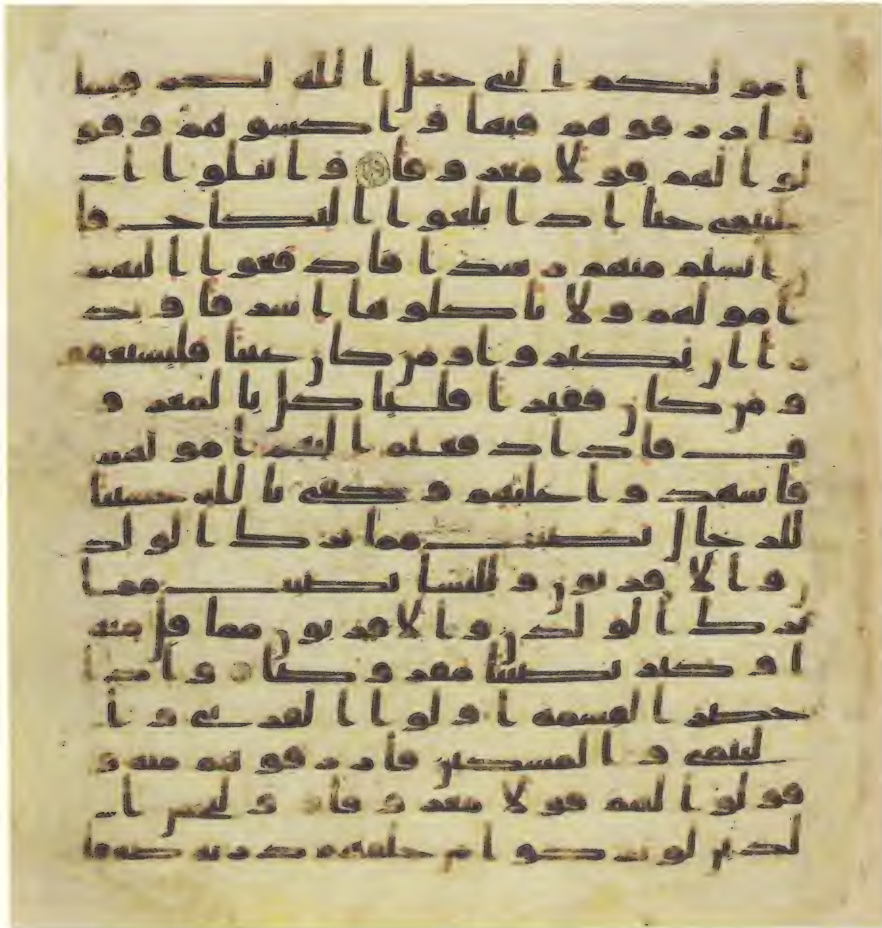 امولكم التى جعل الله لكم قيما
وارزقوهم فيها واكسوهم وقو
لوا لهم قولا معروفا وابتلوا ا
ليتمى حتا اذا بلغوا النكاح فا
ن انستم منهم رشدا فادفعوا اليهم
امولهم ولا تاكلوها اسرافا وبد
را ان يكبروا ومن كان غنيا فليستعفف
ومن كان فقيرا فلياكل بالمعرو
ف فاذا دفعتم اليهم امولهم
فاشهدوا عليهم وكفى بالله حسيبا
للرجال نصيب مما ترك الولد
ن والاقربون وللنسا نصيب مما
ترك الولدن والاقربون مما قل منه
او كثر نصيبا مفروضا واذا
حضر القسمة اولوا القربى وا
ليتمى والمسكين فارزقوهم منه و
قولوا لهم قولا معروفا وليخش ا
لذين لو تركوا من خلفهم ذرية ضعفا